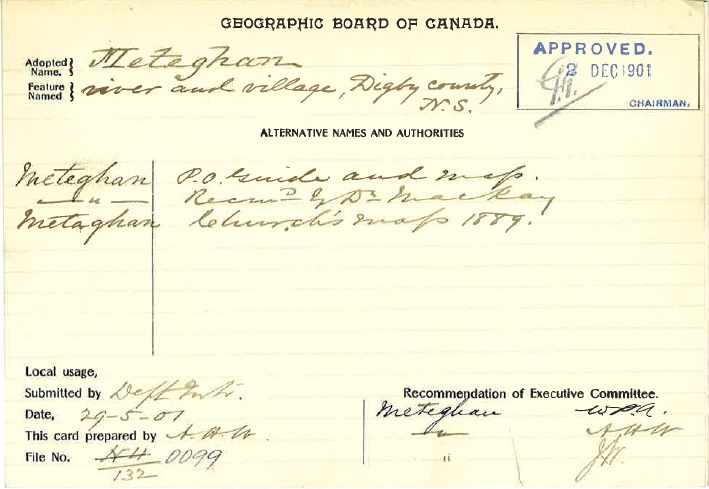 GEOGRAPHIC BOARD OF CANADA.
Adopted Name. } Meteghan
Feature Named } river and village, Digby county, N.S.
APPROVED.
2 DEC 1901
CHAIRMAN.
ALTERNATIVE NAMES AND AUTHORITIES
Meteghan P.O. Guide and map.
— " — Recmd by Dr Mackay
Metaghan Church's map 1889.
Local usage,
Submitted by Dept Intr.
Date, 29-5-01
This card prepared by A.H.W.
File No. NH 0099
132
Recommendation of Executive Committee.
Meteghan W.P.A.
— " — A.H.W
" J.W.